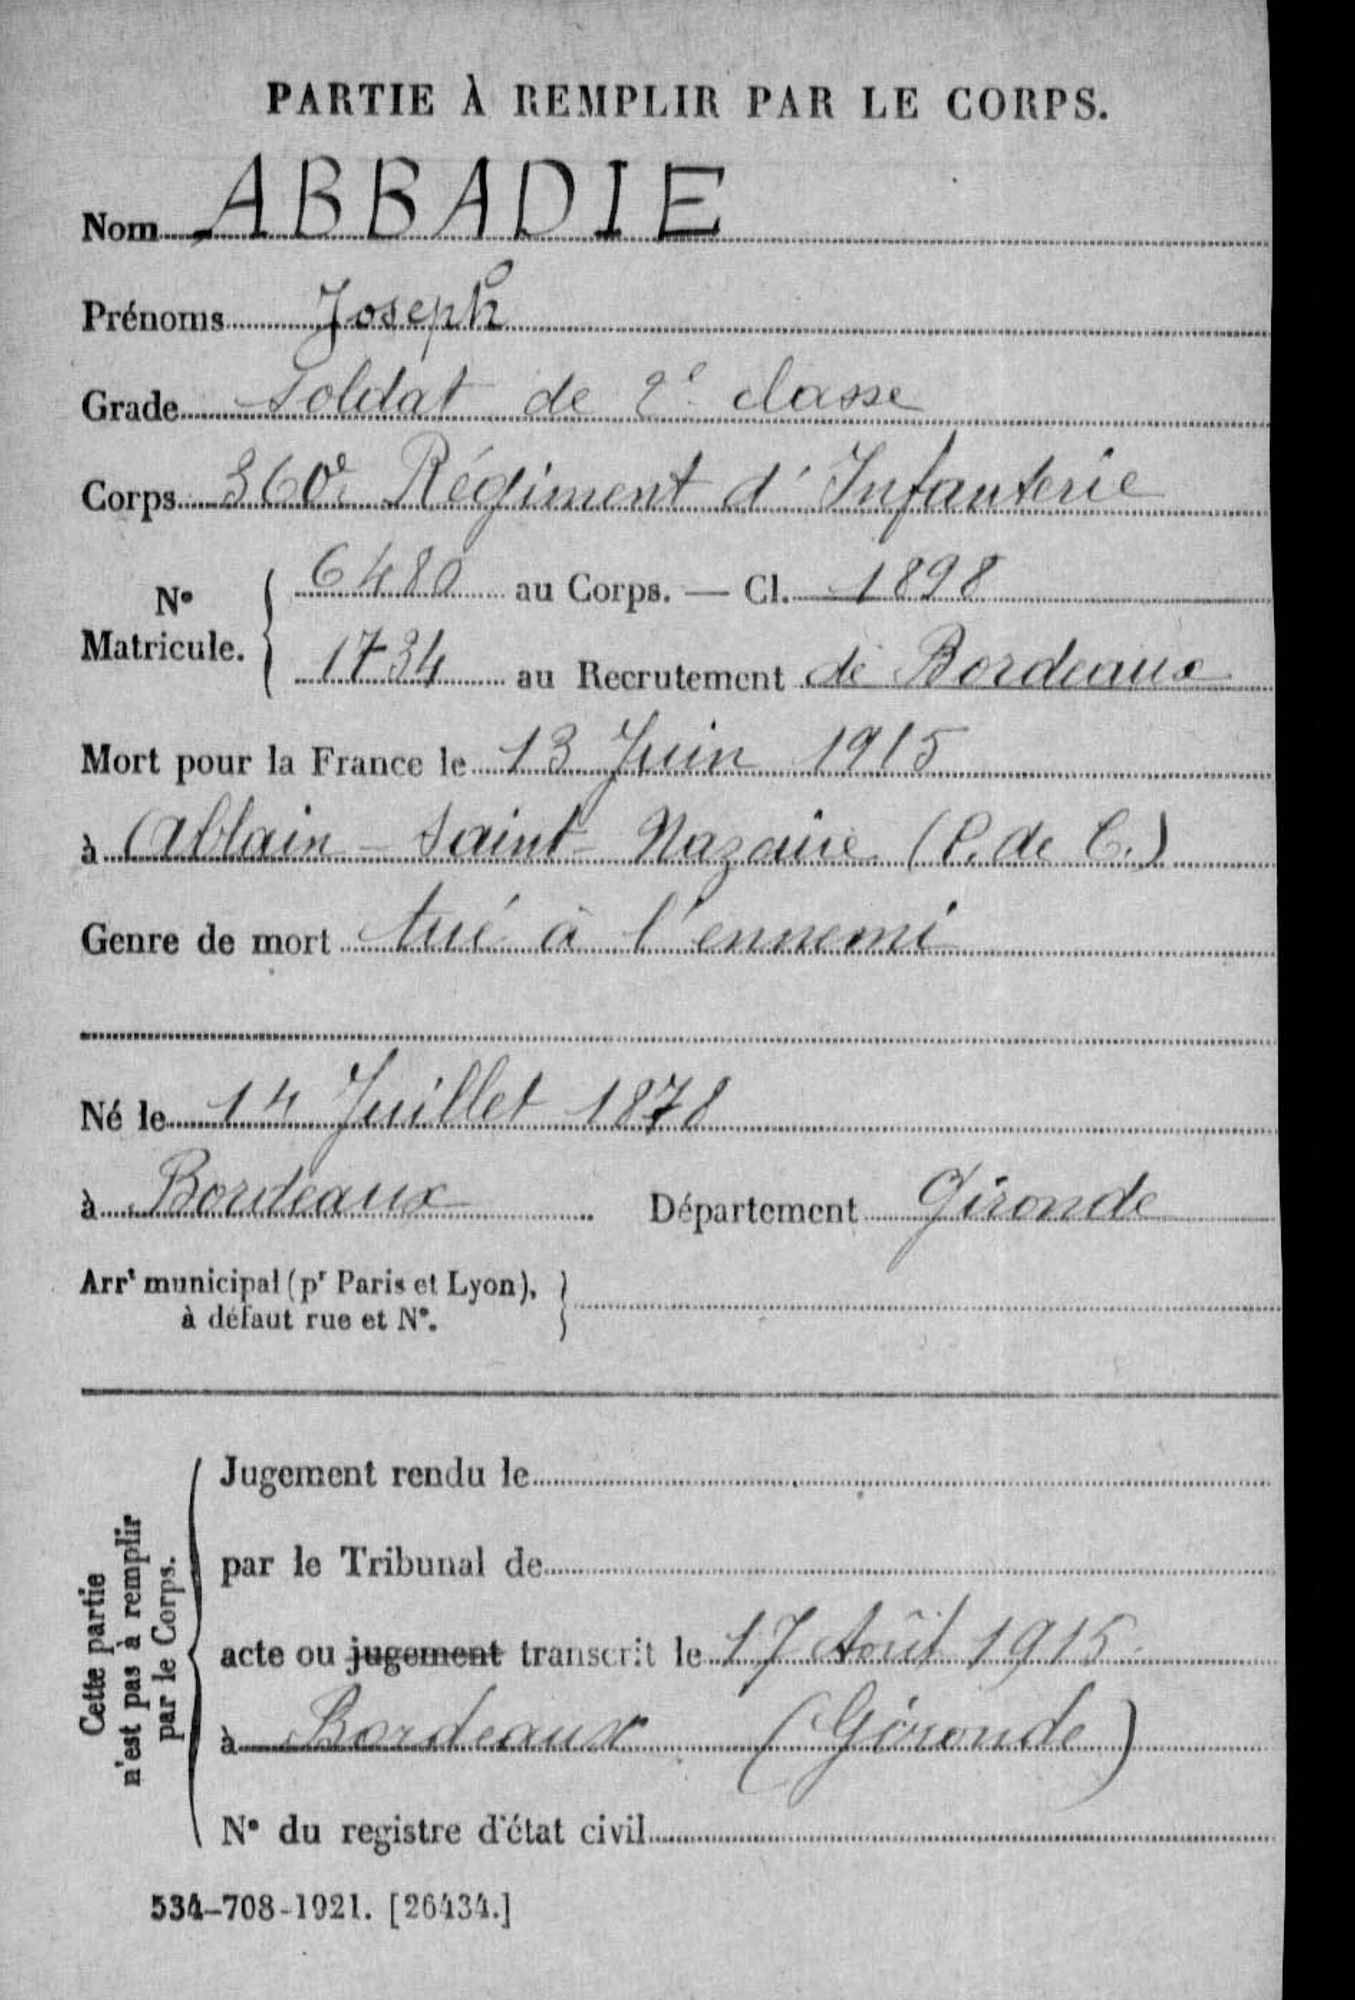 PARTIE À REMPLIR PAR LE CORPS.
Nom ABBADIE
Prénoms Joseph
Grade Soldat de 2e classe
Corps 360e Régiment d'Infanterie
N° Matricule. 6480 au Corps. — Cl. 1898
1734 au Recrutement de Bordeaux
Mort pour la France le 13 Juin 1915
à Ablain - Saint - Nazaire (P. de C.)
Genre de mort tué à l'ennemi
Né le 14 Juillet 1878
à Bordeaux Département Gironde
Arrt municipal (pr Paris et Lyon),
à défaut rue et N°.
Cette partie
n'est pas à remplir
par le Corps.
Jugement rendu le
par le Tribunal de
acte ou jugement transcrit le 17 Août 1915
à Bordeaux (Gironde)
N° du registre d'état civil
534-708-1921. [26434.]